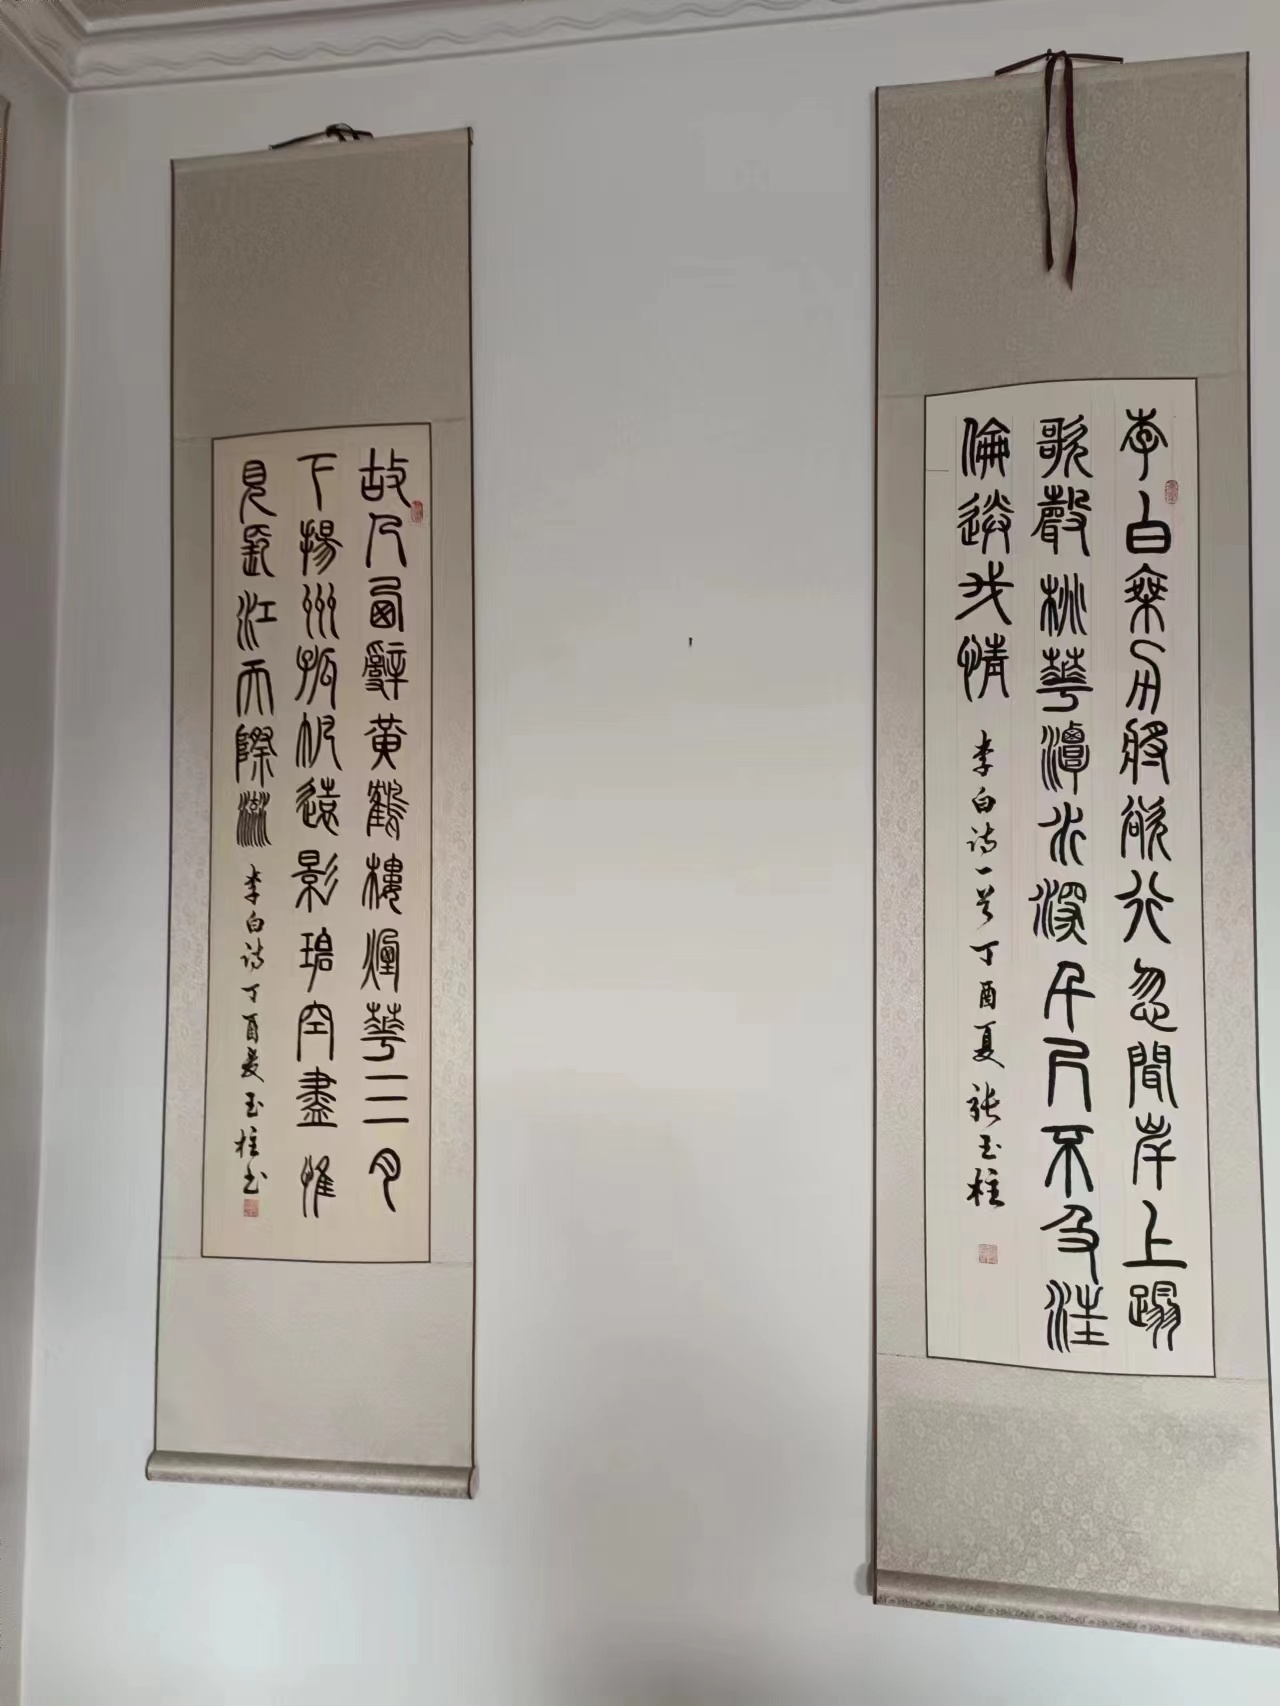 李白乘舟將欲行忽聞岸上蹋
歌聲桃華潭水深千尺不及汪
倫送我情 李白诗一首丁酉夏张玉柱
故人西辭黃鶴樓煙華三月
下揚州孤帆遠影碧空盡惟
見長江天際流 李白诗丁酉夏玉柱书